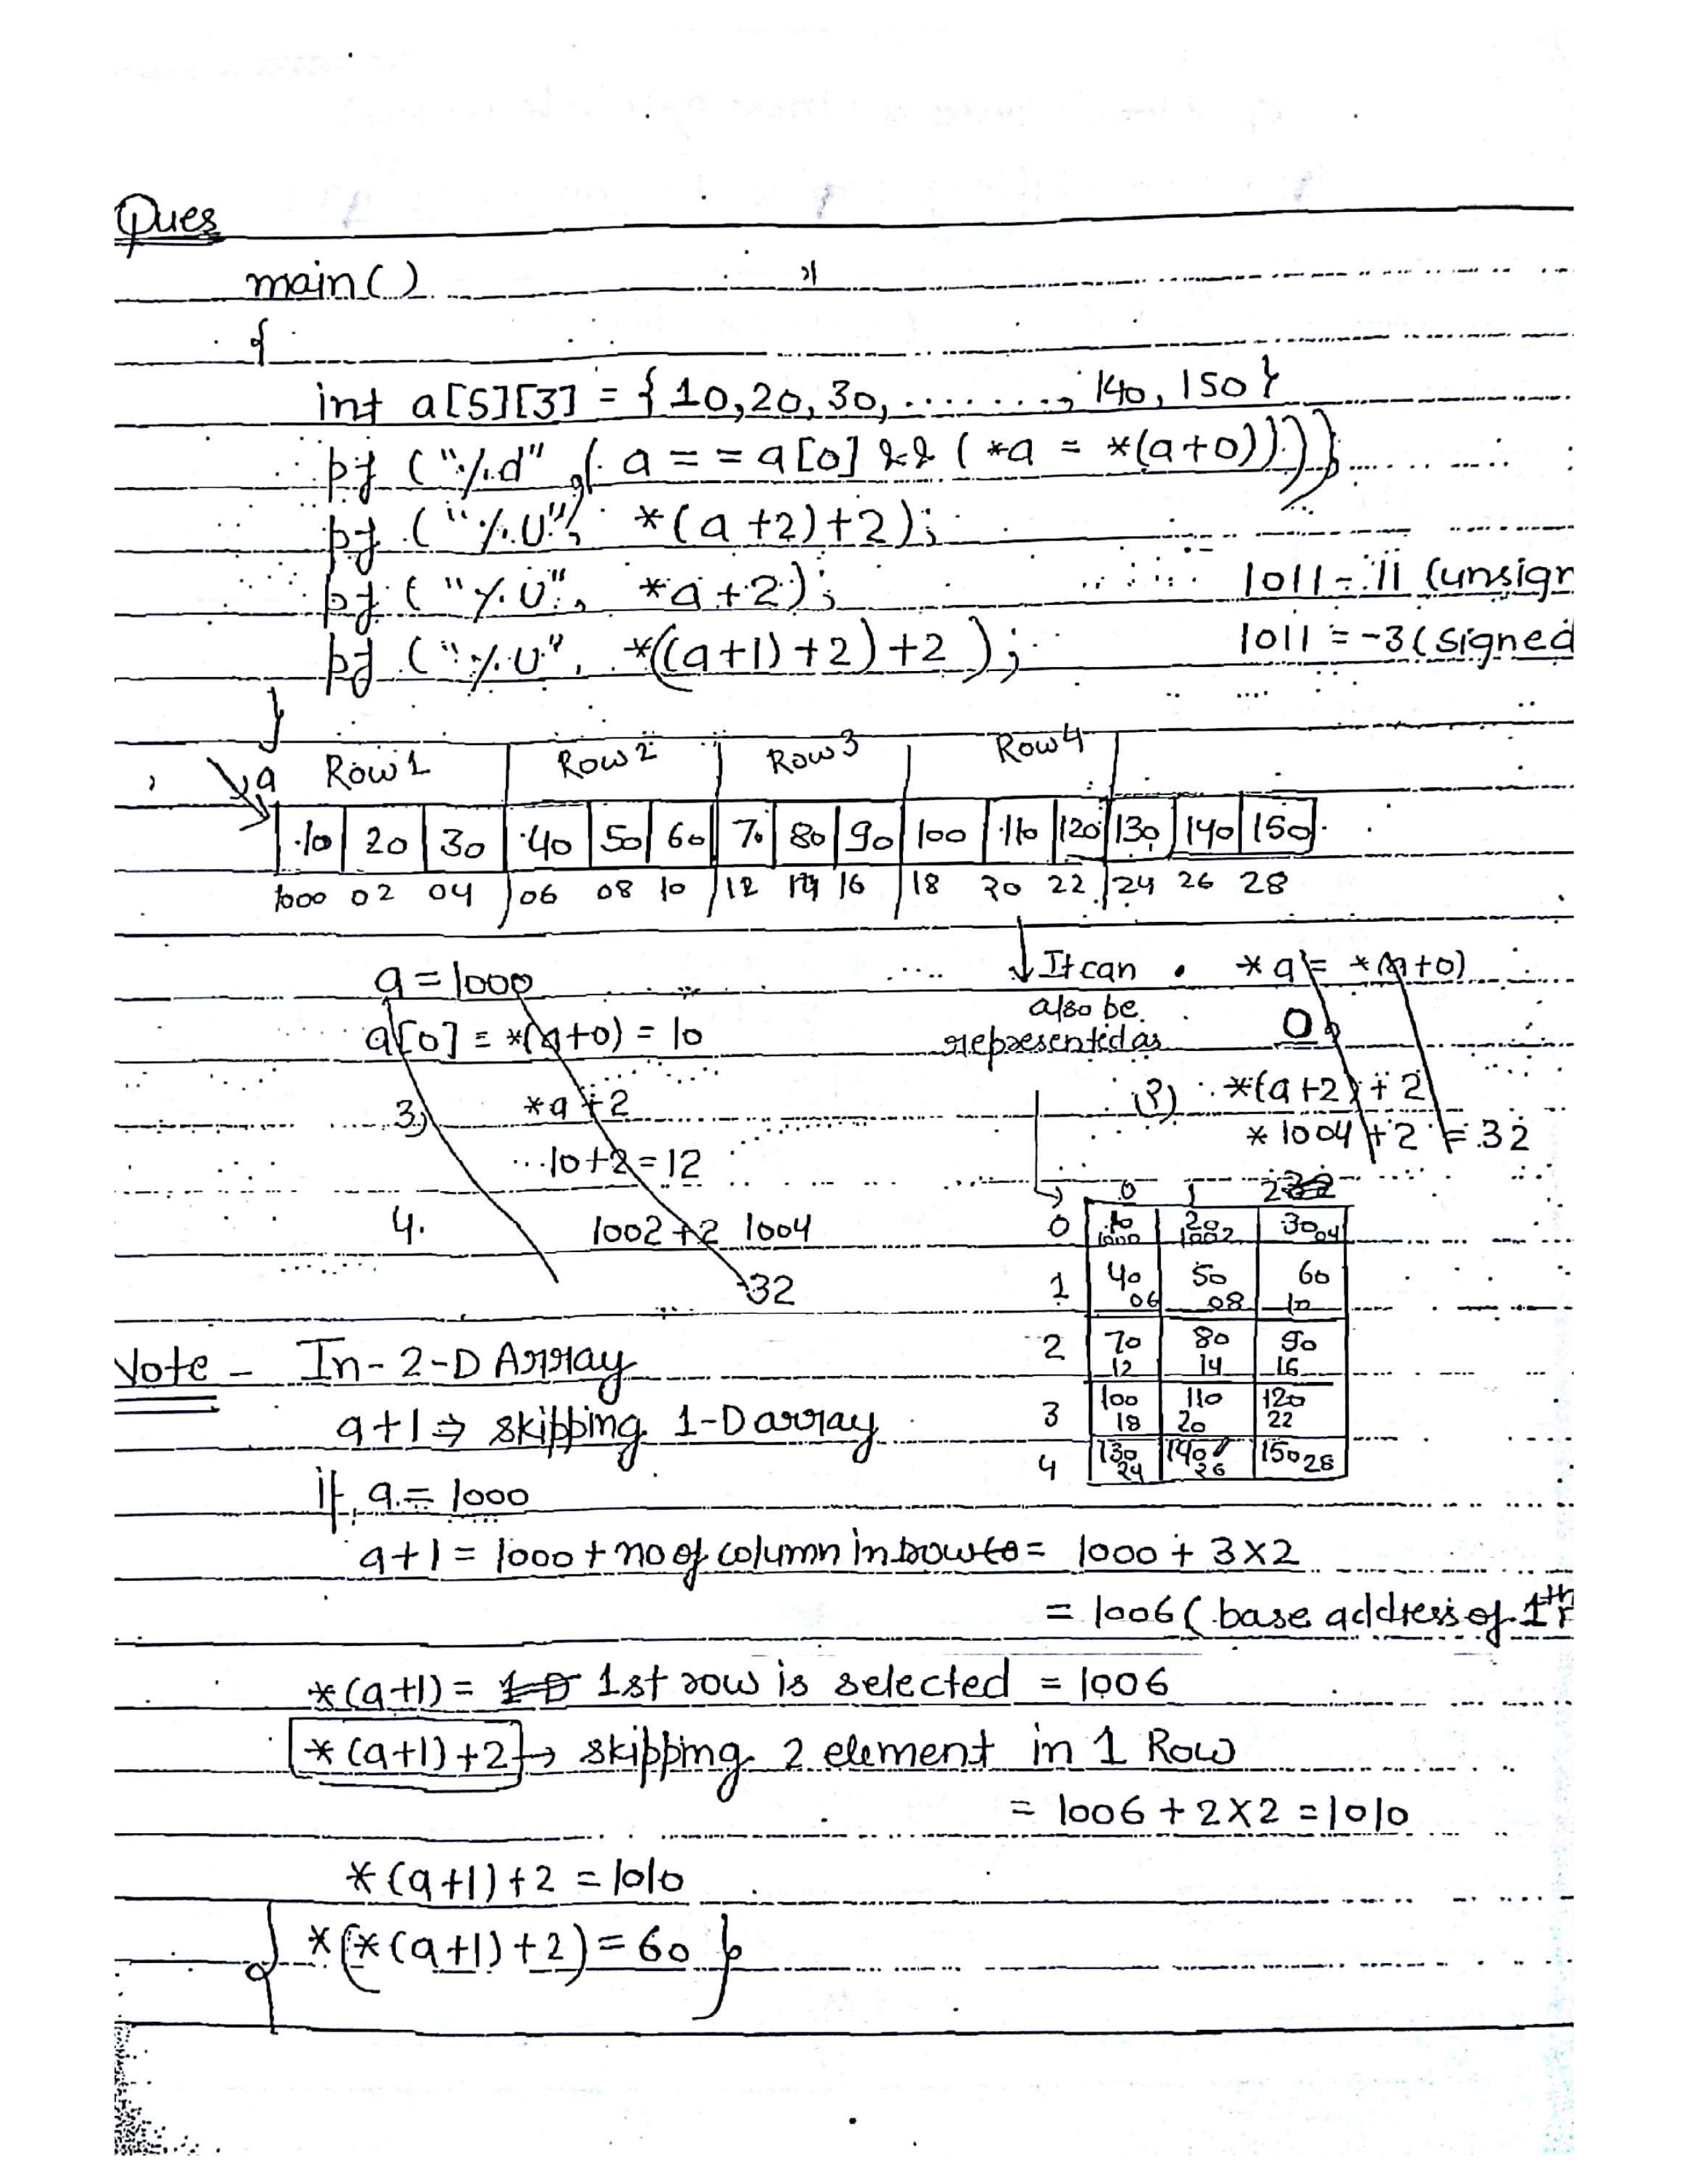 Ques
main()
{
int a[5][3] = {10,20,30, ........, 140, 150}
pf ("%d", (a == a[0] && (*a = *(a+0))));
pf ("%u", *(a+2)+2);
pf ("%u", *a+2);
1011 - 11 (unsign
pf ("%u", *((a+1)+2)+2);
1011 = -3 (signed
}
a Row 1 Row 2 Row 3 Row 4
10 20 30 40 50 60 70 80 90 100 110 120 130 140 150
1000 02 04 06 08 10 12 14 16 18 20 22 24 26 28
a = 1000
a[0] = *(a+0) = 10
3) *a+2
10+2=12
4. 1002+2 1004
32
It can
also be
represented as
*a = *(a+0)
0
2) *(a+2)+2
*1004+2 = 32
0 1 2
0 10 1000 20 1002 30 04
1 40 06 50 08 60 10
2 70 12 80 14 90 16
3 100 18 110 20 120 22
4 130 24 140 26 150 28
Note - In-2-D Array
a+1 ⇒ skipping 1-D array
if a = 1000
a+1 = 1000 + no of column in row = 1000 + 3×2
= 1006 (base address of 1th
*(a+1) = 1st row is selected = 1006
*(a+1)+2 → skipping 2 element in 1 Row
= 1006 + 2×2 = 1010
*(a+1)+2 = 1010
{ *(*(a+1)+2) = 60 }